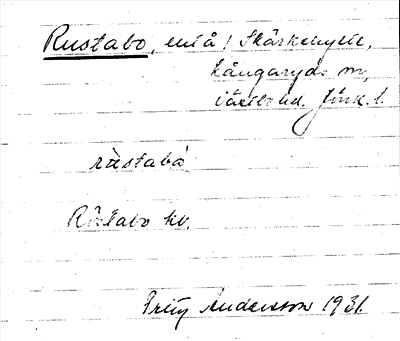 Rustabo, enl å! Skärkehyeln,
Kångaryds sn,
Västbo hd. Jönk. l.
ràstabó
Råstabo hv.
Fritz Anderson 1931.